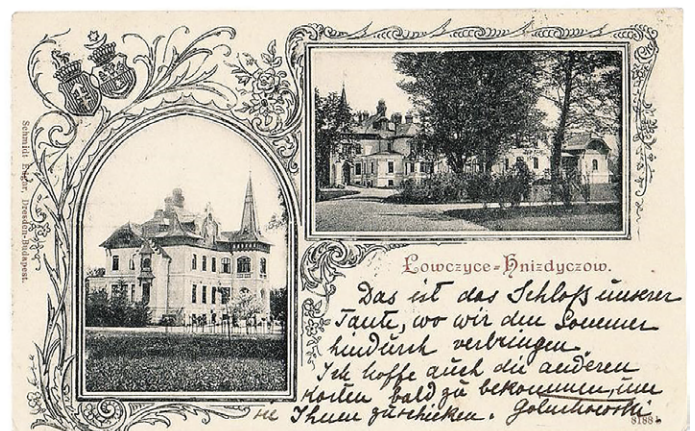 Schmidt Edgar, Dresden-Budapest.
Łowczyce-Hnizdyczow.
Das ist das Schloß unserer
Tante, wo wir den Sommer
hindurch verbringen.
Ich hoffe auch die anderen
Karten bald zu bekommen, um
sie Ihnen zuschicken. Goluchowski
81884